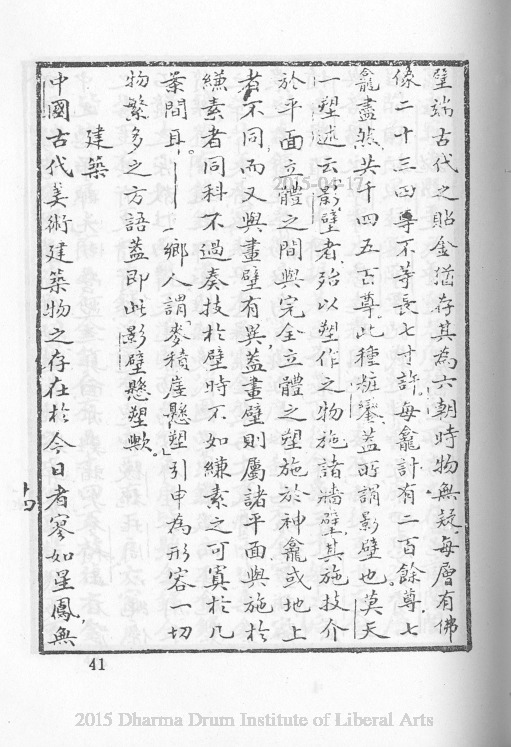 壁端古代之貼金猶存其為六朝時物無疑每層有佛
像二十三四尊不等長七寸許每龕計有二百餘尊七
龕盡然共千四五百尊此種粧鑾蓋所謂影壁也莫天
一塑述云影壁者殆以塑作之物施諸墻壁其施技介
於平面立體之間與完全立體之塑施於神龕或地上
者不同而又與畫壁有異蓋畫壁則屬諸平面與施於
縑素者同科不過奏技於壁時不如縑素之可寘於几
案間耳。——鄉人謂「麥積崖懸塑」引申為形容一切
物繁多之方語蓋即此影壁懸塑歟。
建築
中國古代美術建築物之存在於今日者寥如星鳳無
十四
41
2015-04-17
2015 Dharma Drum Institute of Liberal Arts